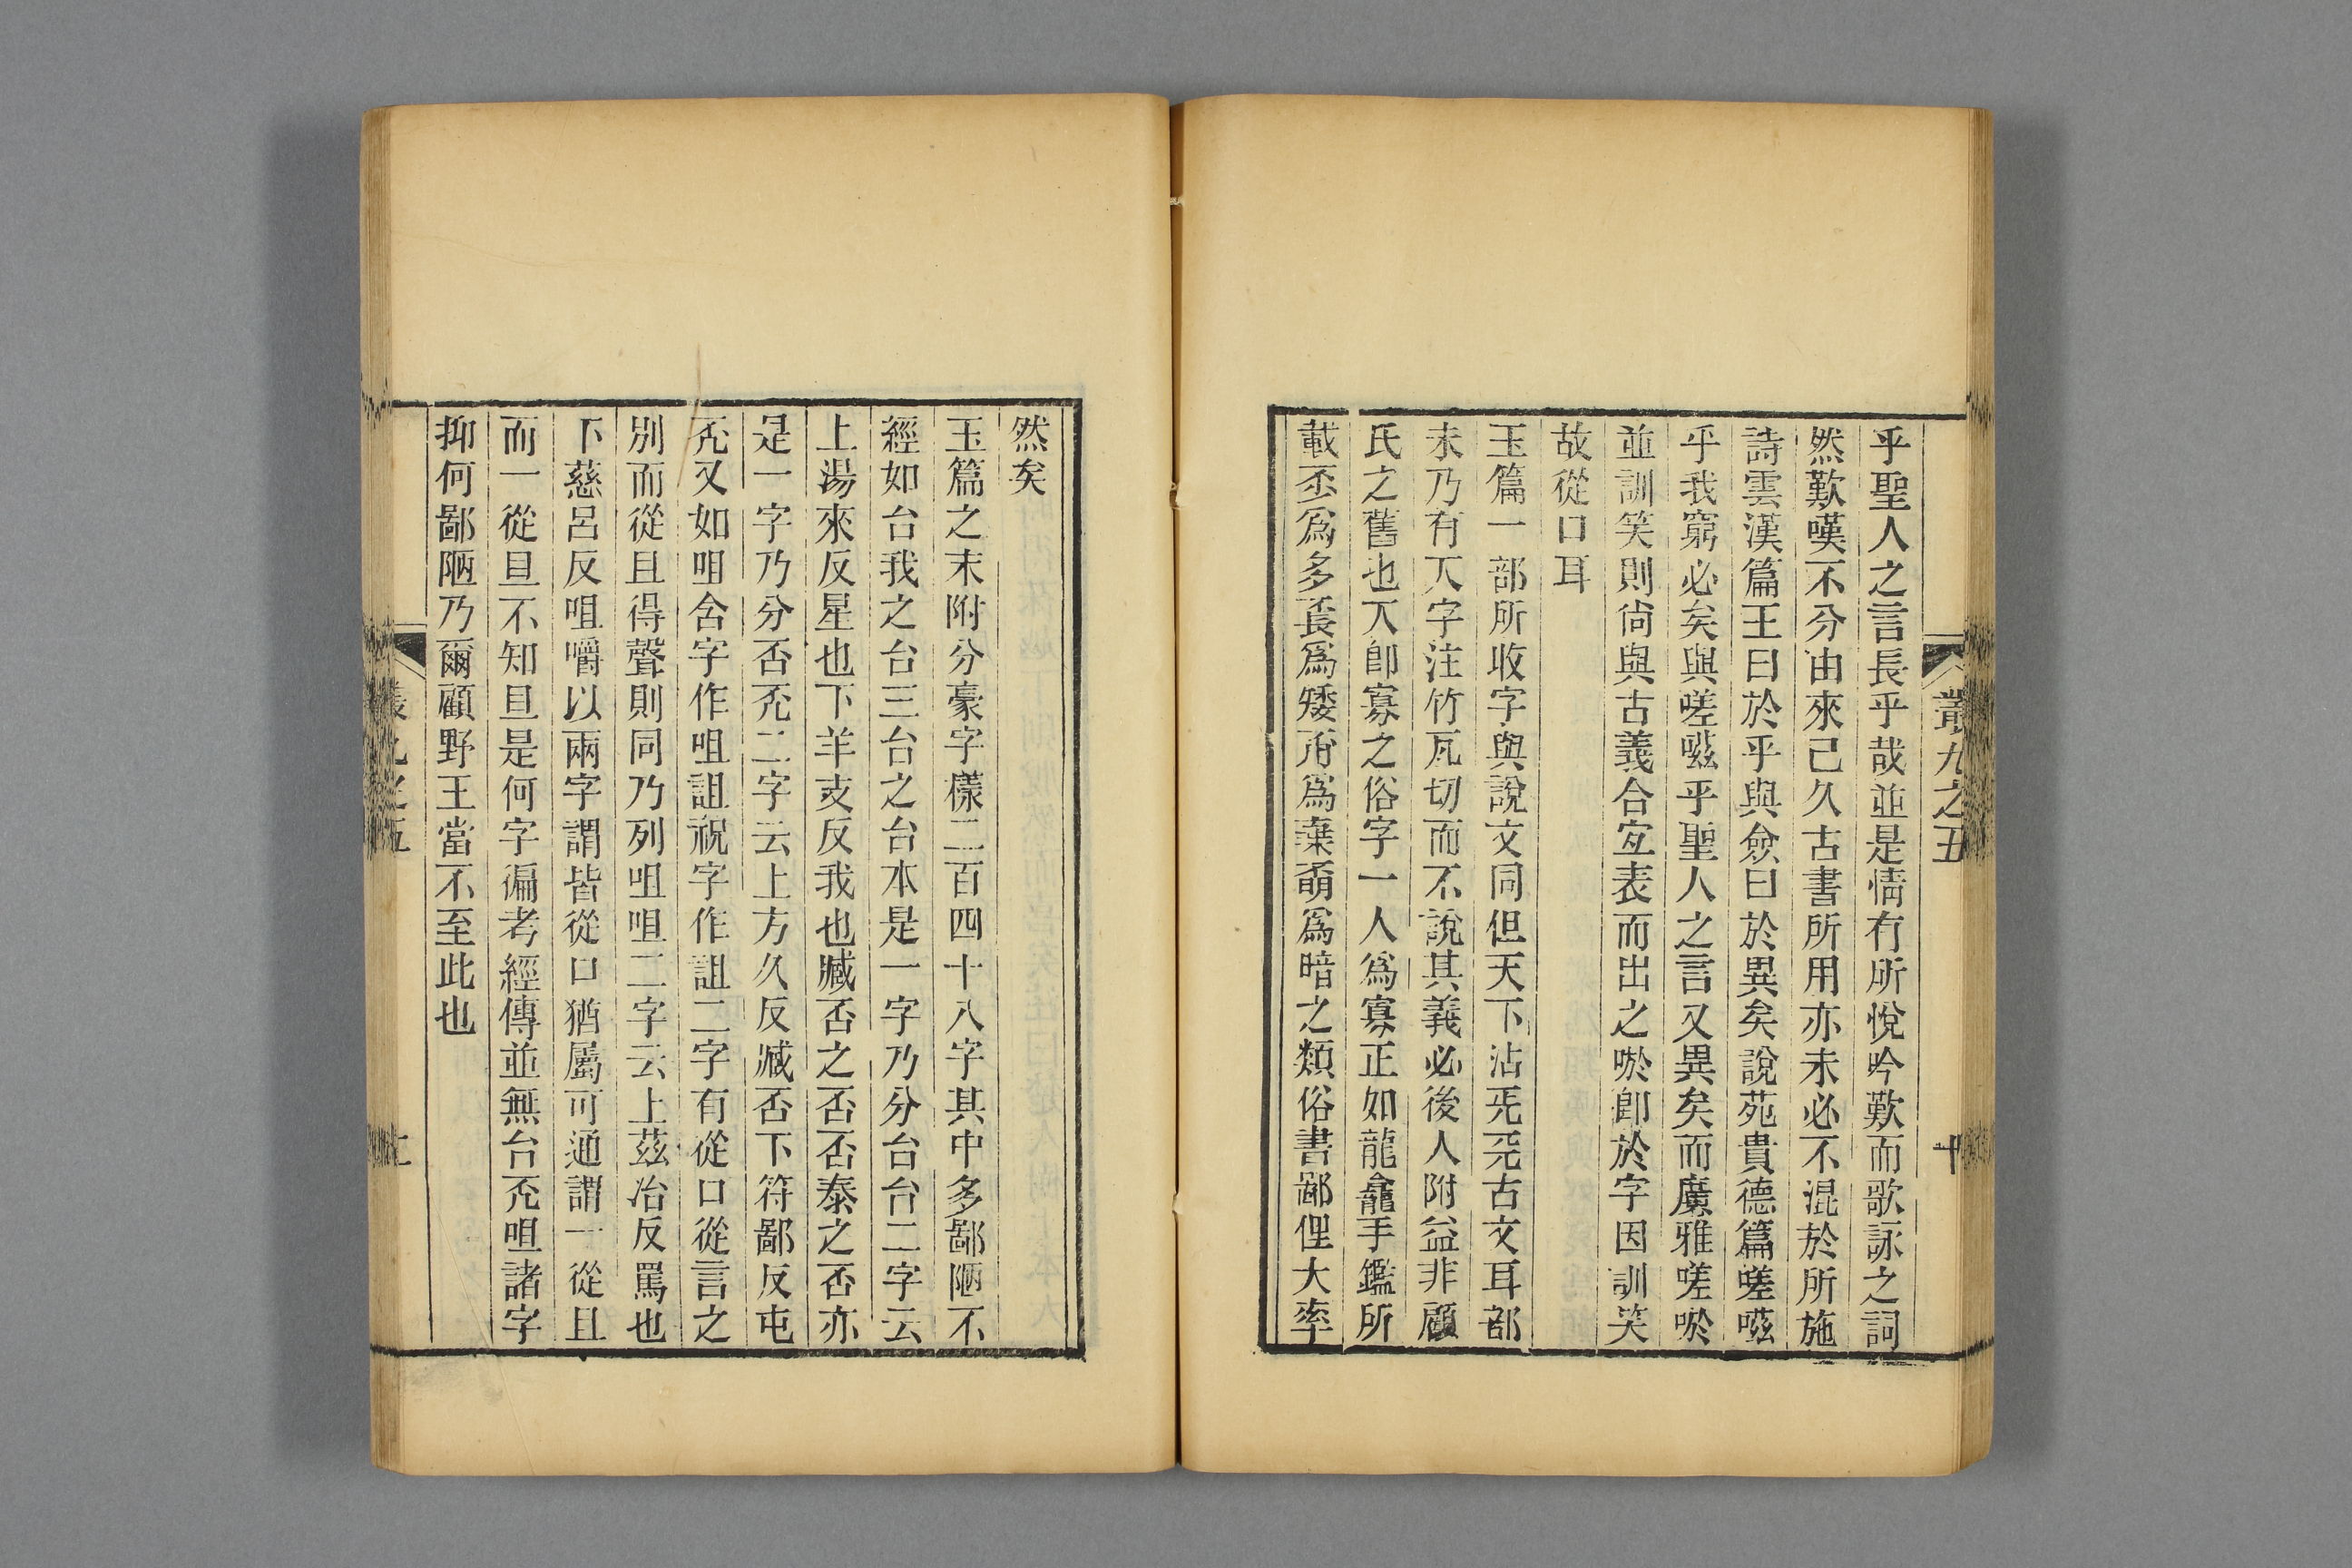 叢九之五
十
乎聖人之言長乎哉並是情有所悅吟歎而歌詠之詞
然歎嘆不分由來已久古書所用亦未必不混於所施
詩雲漢篇王曰於乎與僉曰於異矣說苑貴德篇嗟嗞
乎我窮必矣與嗟嗞乎聖人之言又異矣而廣雅嗟唹
並訓笑則尙與古義合宐表而出之唹卽於字因訓笑
故從口耳
玉篇一部所收字與說文同但天下沾兂㒫古文耳部
末乃有丆字注竹瓦切而不說其義必後人附益非顧
氏之舊也丆卽寡之俗字一人爲寡正如龍龕手鑑所
載奀爲多镺爲矮𠀬爲棄䒐爲暗之類俗書鄙俚大率
然矣
玉篇之末附分豪字㨾二百四十八字其中多鄙陋不
經如台我之台三台之台本是一字乃分台台二字云
上湯來反星也下羊支反我也臧否之否否泰之否亦
是一字乃分否㕻二字云上方久反臧否下符鄙反屯
㕻又如咀含字作咀詛祝字作詛二字有從口從言之
別而從且得聲則同乃列咀咀二字云上茲冶反罵也
下慈呂反咀嚼以兩字謂皆從口猶屬可通謂一從且
而一從旦不知旦是何字徧考經傳並無台㕻呾諸字
抑何鄙陋乃爾顧野王當不至此也
叢九之五